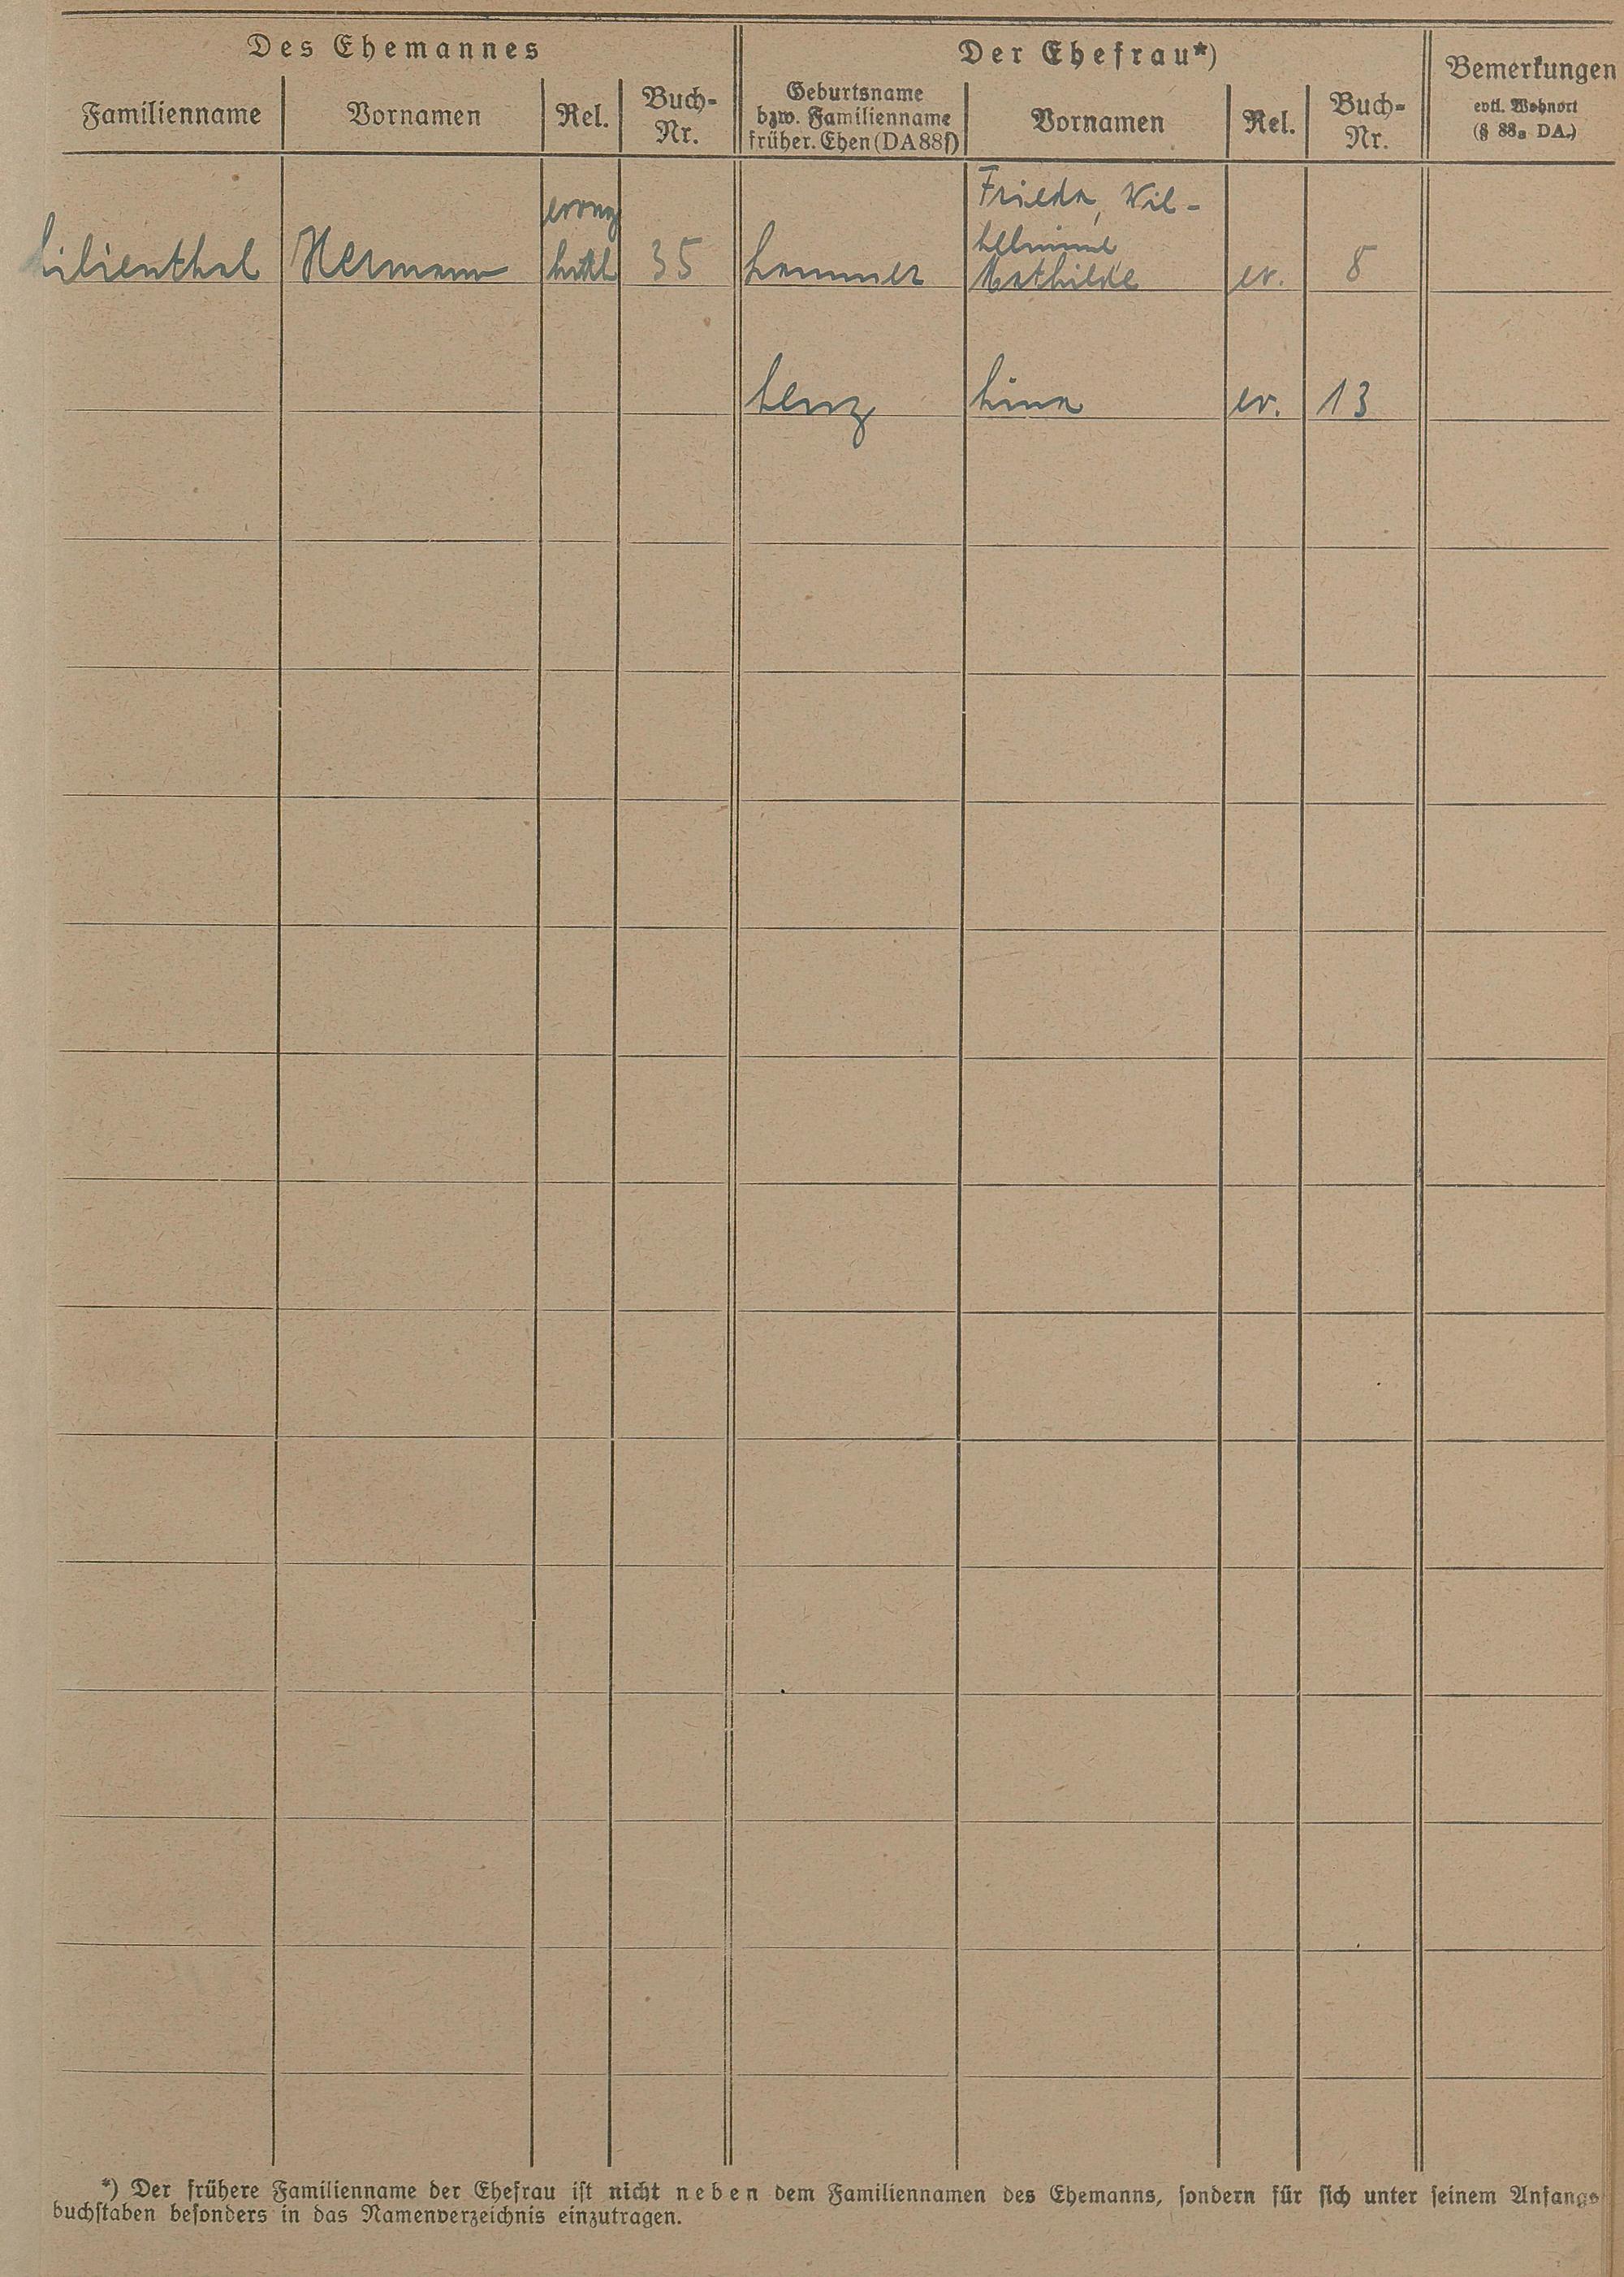 Des Ehemannes
Der Ehefrau*)
Bemerkungen
evtl. Wohnort
(§ 88a DA.)
Familienname
Vornamen
Rel.
Buch-
Nr.
Geburtsname
bzw. Familienname
früher. Ehen (DA 88f)
Vornamen
Rel.
Buch-
Nr.
Lilienthal
Hermann
evang
luth
35
Lammer
Frieda, Wil-
helmine
Mathilde
ev.
8
Lenz
Lina
ev.
13
*) Der frühere Familienname der Ehefrau ist nicht neben dem Familiennamen des Ehemanns, sondern für sich unter seinem Anfangs
buchstaben besonders in das Namenverzeichnis einzutragen.